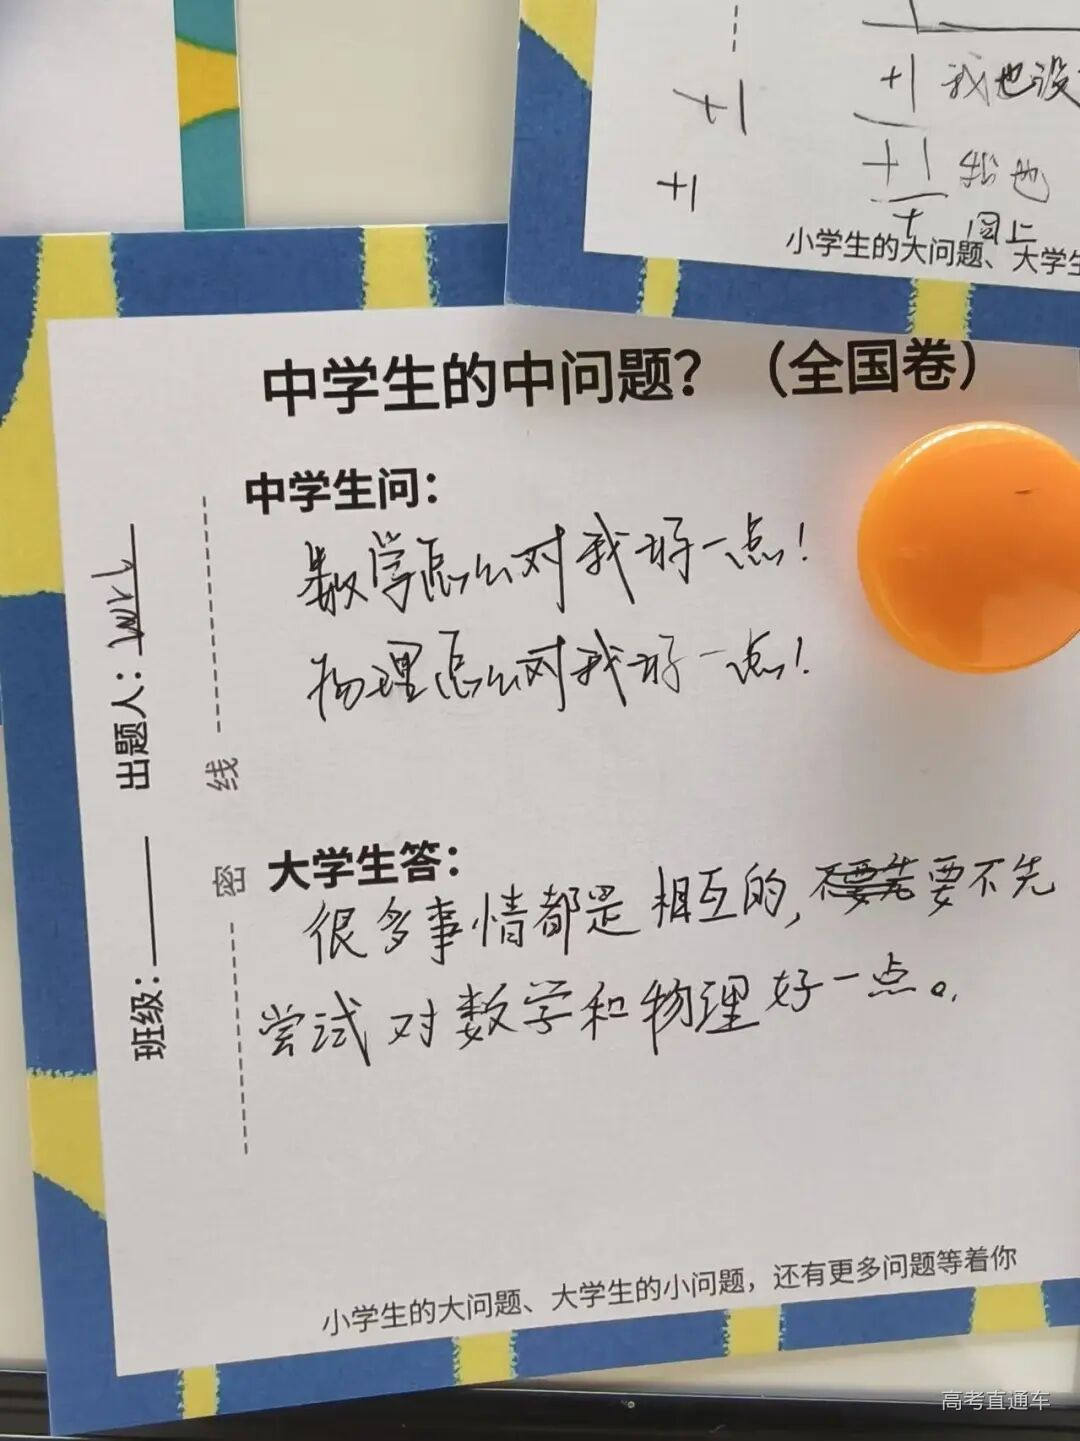 +1
+1
+1 我也没
+1 我也
+ 同上
小学生的大问题、大学生
中学生的中问题?(全国卷)
中学生问:
数学怎么对我好一点!
物理怎么对我好一点!
大学生答:
很多事情都是相互的,不要先要不先
尝试对数学和物理好一点。
班级: 出题人:
密 线
小学生的大问题、大学生的小问题,还有更多问题等着你
高考直通车